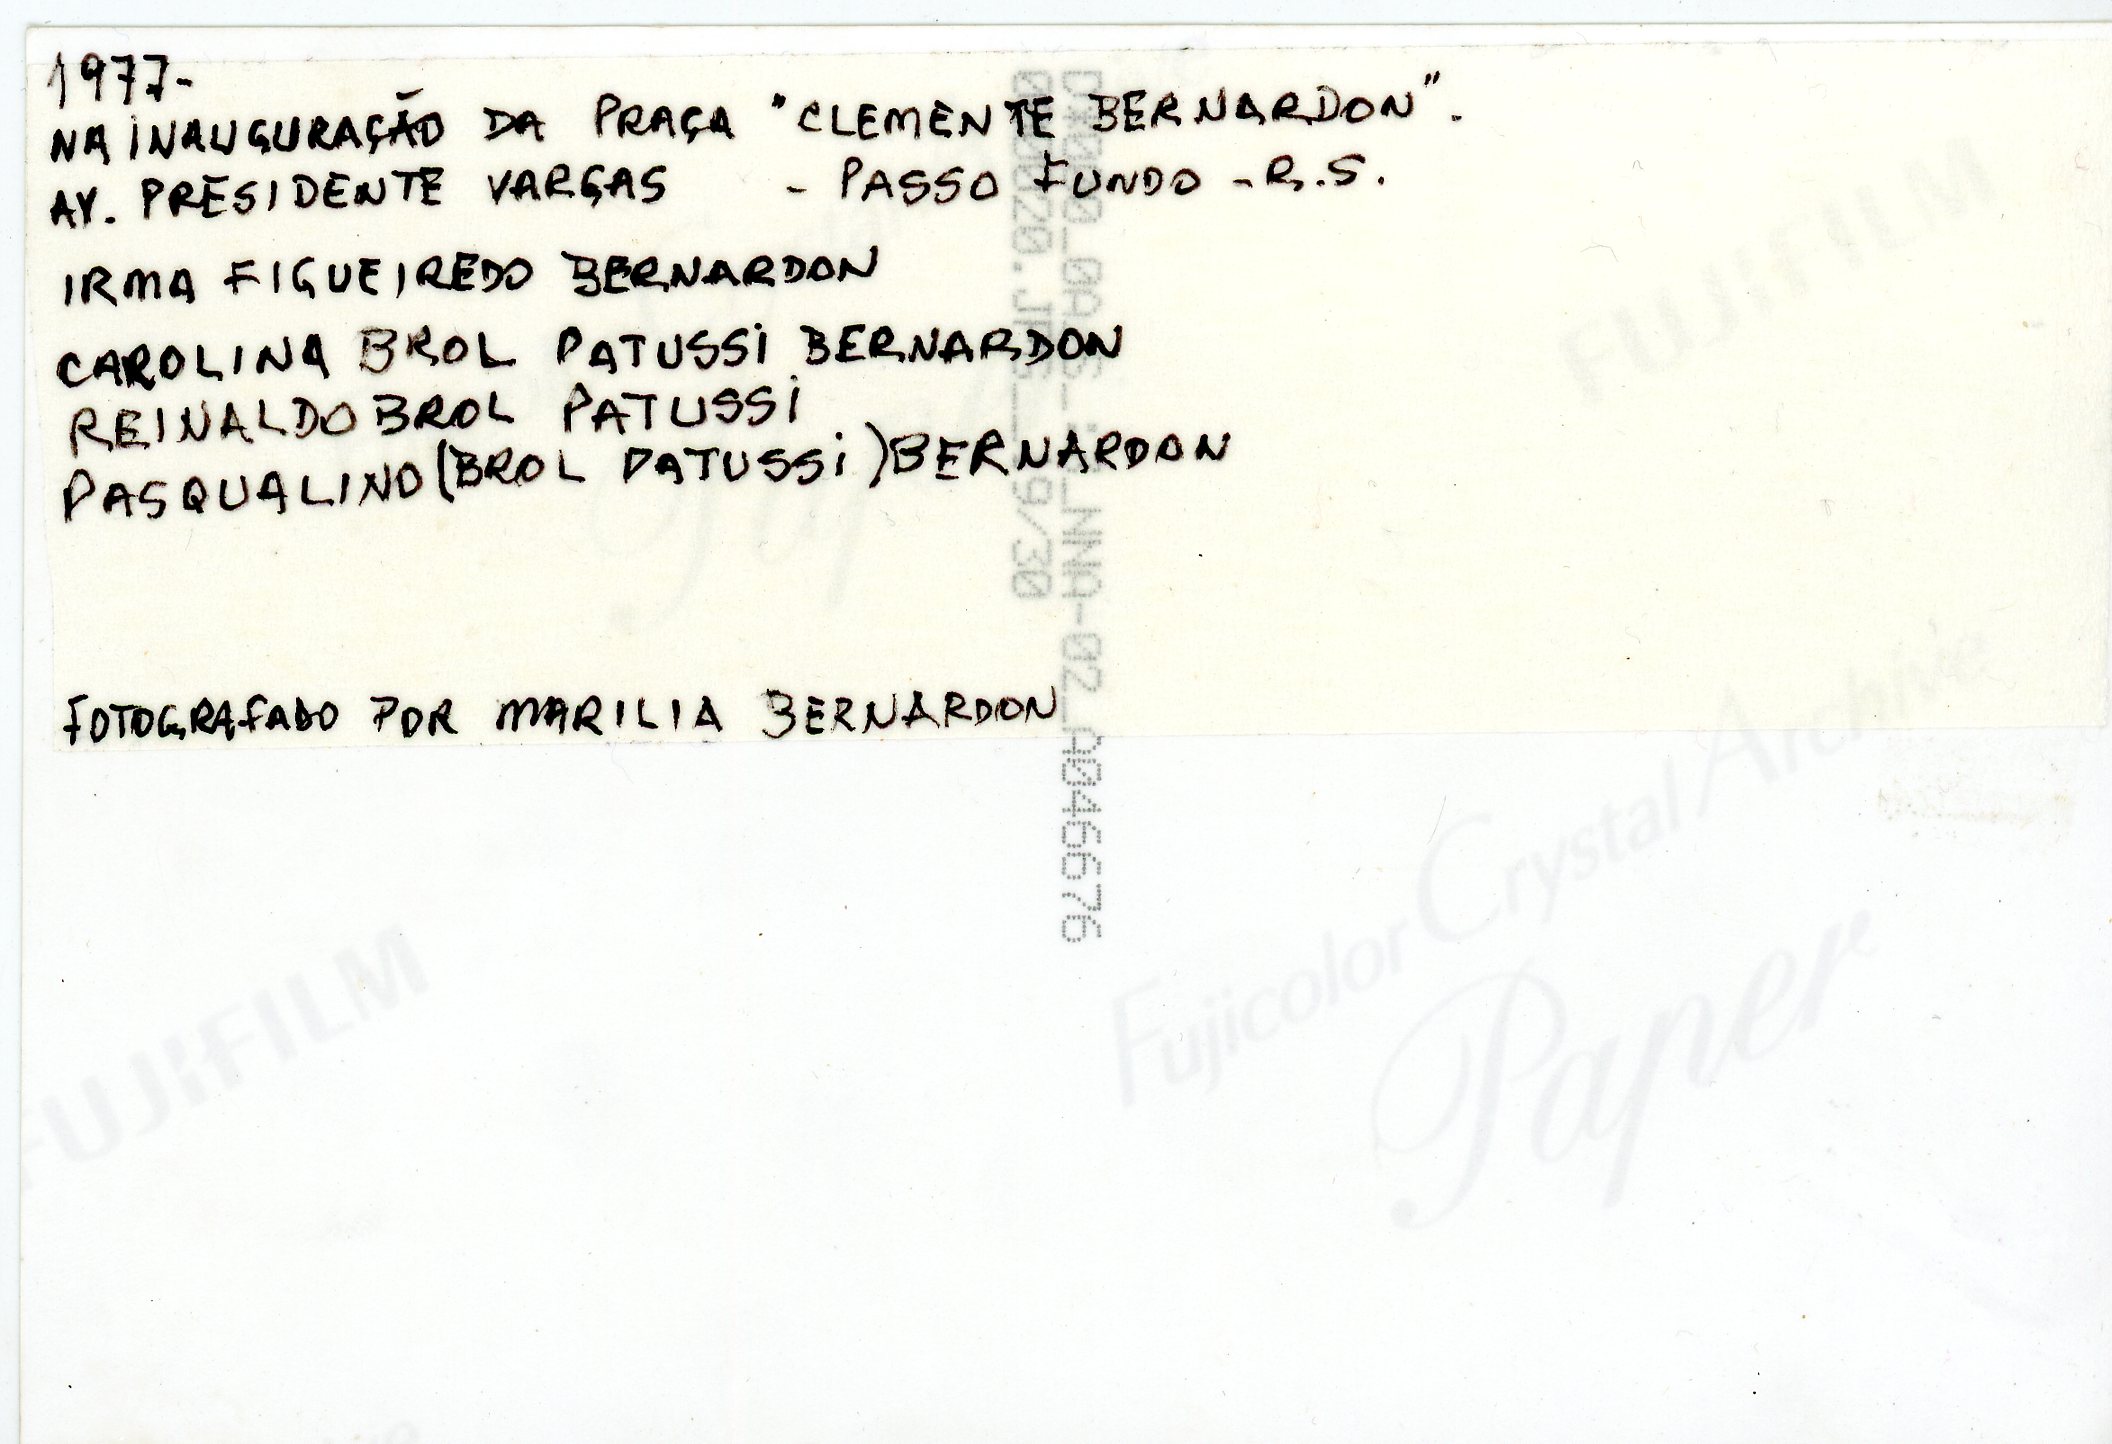 1977-
NA INAUGURAÇÃO DA PRAÇA "CLEMENTE BERNARDON".
AV. PRESIDENTE VARGAS - PASSO FUNDO - R.S.
IRMA FIGUEIREDO BERNARDON
CAROLINA BROL PATUSSI BERNARDON
REINALDO BROL PATUSSI
PASQUALINO (BROL PATUSSI) BERNARDON
FOTOGRAFADO POR MARILIA BERNARDON
FUJIFILM
FUJIFILM
Fujicolor Crystal Archive
Paper